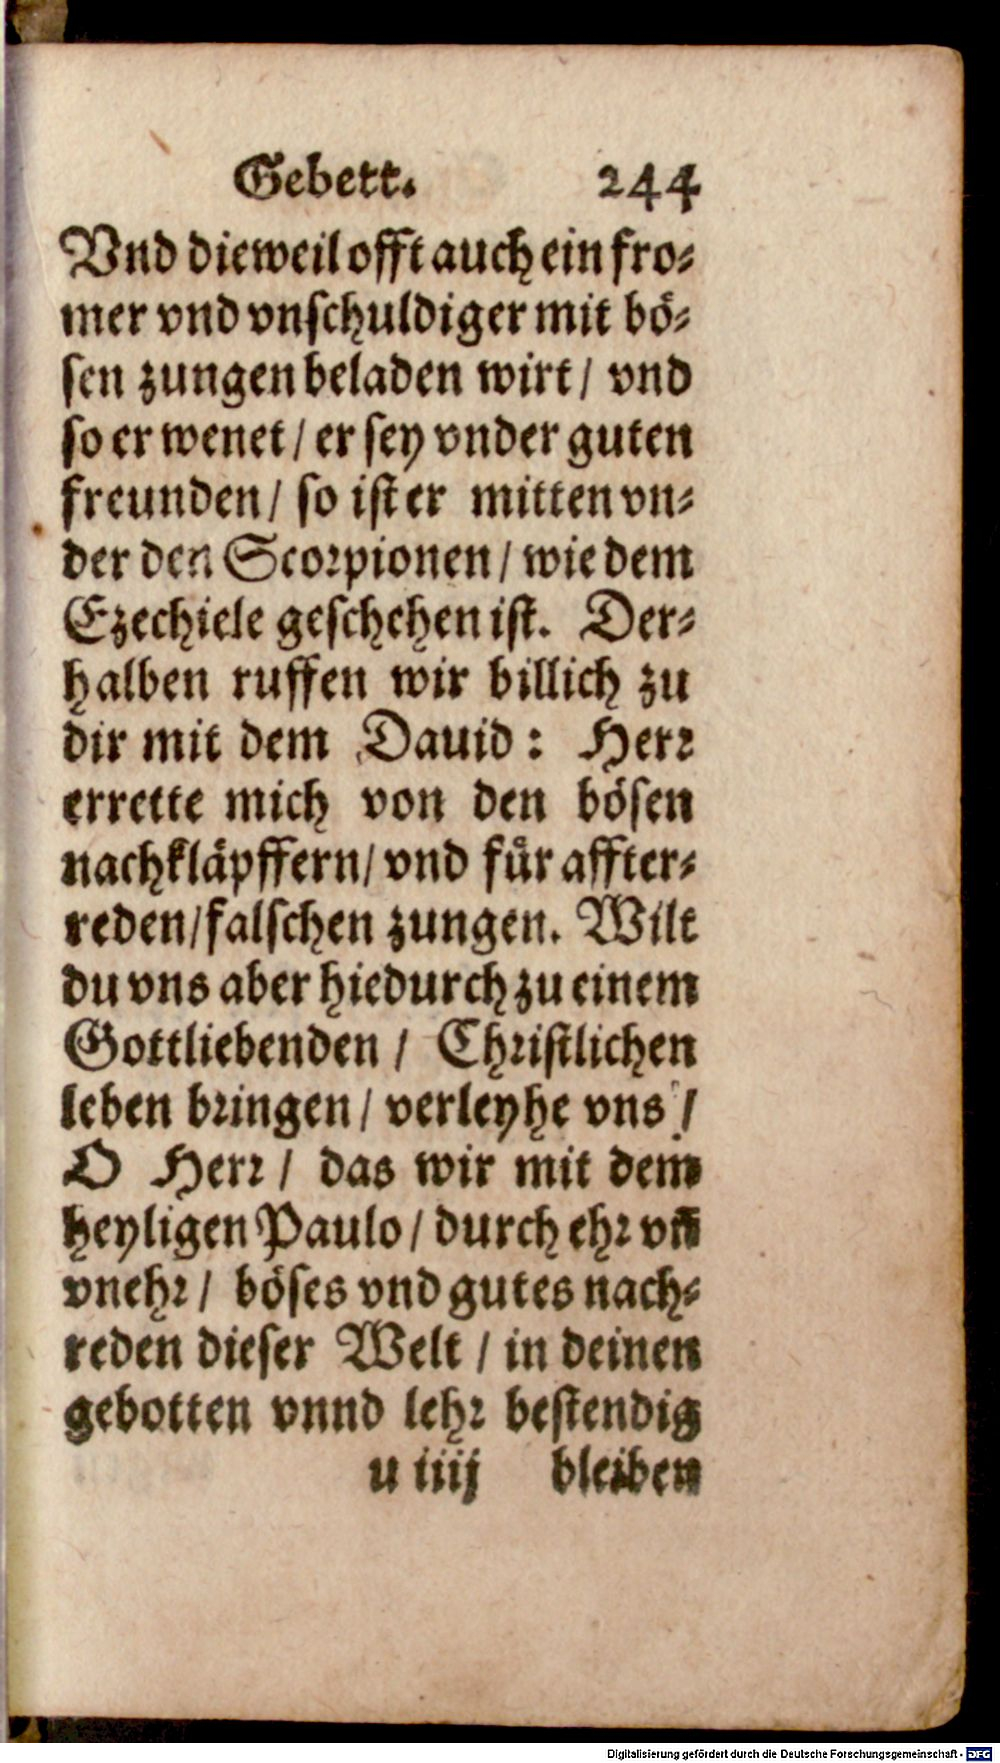 Gebett. 244
Vnd dieweil offt auch ein fro⸗
mer vnd vnſchuldiger mit bö⸗
ſen zungen beladen wirt / vnd
ſo er wenet / er ſey vnder guten
freunden / ſo iſt er mitten vn⸗
der den Scorpionen / wie dem
Ezechiele geſchehen iſt. Der⸗
halben ruffen wir billich zu
dir mit dem Dauid: Herꝛ
errette mich von den böſen
nachkläpffern / vnd fuͤr affter⸗
reden / falſchen zungen. Wilt
du vns aber hiedurch zu einem
Gottliebenden / Chꝛiſtlichen
leben bꝛingen / verleyhe vns /
O Herꝛ / das wir mit dem
heyligen Paulo / durch ehꝛ vñ
vnehꝛ / böſes vnd gutes nach⸗
reden dieſer Welt / in deinen
gebotten vnnd lehꝛ beſtendig
u iiij bleiben
Digitalisierung gefördert durch die Deutsche Forschungsgemeinschaft - DFG